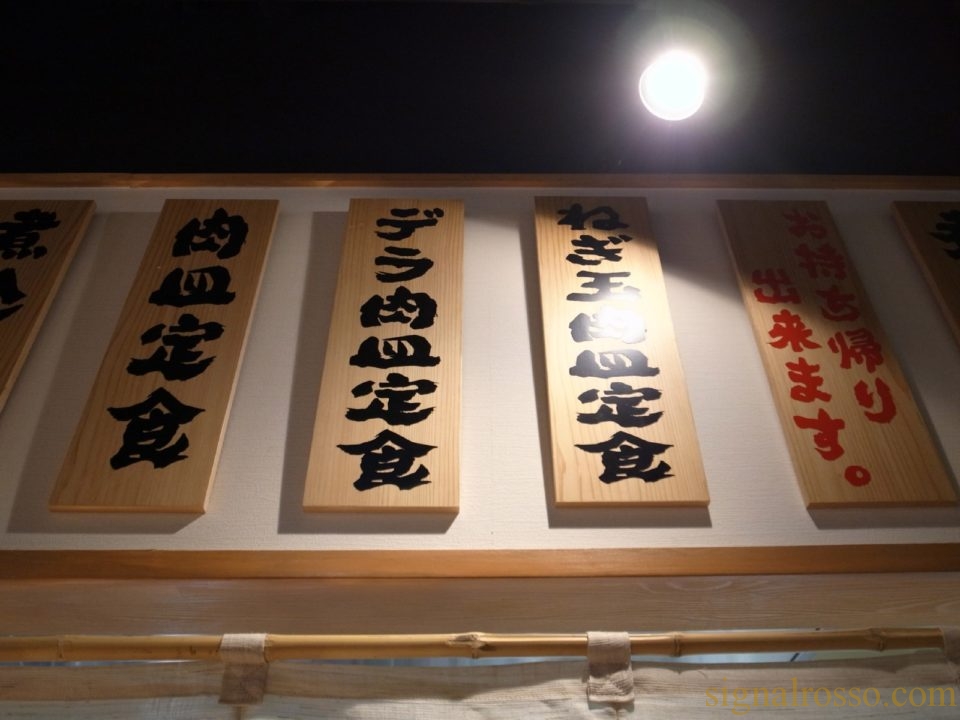 煮込
肉皿定食
デラ肉皿定食
ねぎ玉肉皿定食
お持ち帰り
出来ます。
signalrosso.com